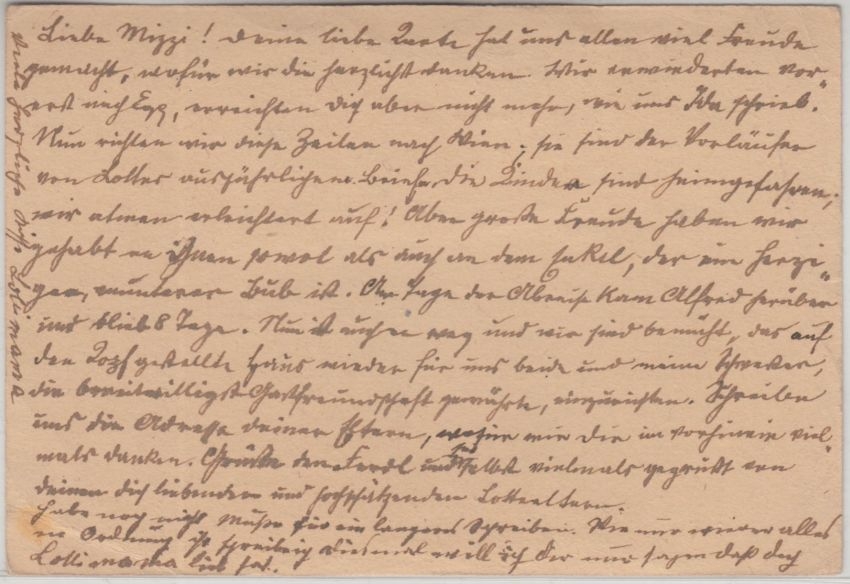 Liebe Mizzi! Deine liebe Karte hat uns allen viel Freude
gemacht, wofür wir dir herzlichst danken. Wir erwiederten vor-
erst nach, erreichten dich aber nicht mehr, wie uns Ida schrieb.
Nun richten wir diese Zeilen nach Wien; sie sind der Vorläufer
von Lottes ausführlichem Briefe. Die Kinder sind heimgefahren,
wir atmen erleichtert auf! Aber große Freude haben wir
gehabt an ihnen sowol als auch an dem Enkel, der ein herzi-
ger, munterer Bub ist. Am Tage der Abreise kam Alfred herüber
und blieb 8 Tage. Nun ist auch er weg und wir sind bemüht, das auf
den Kopf gestellte Haus wieder für uns beide und meine Schwester,
die bereitwilligst Gastfreundschaft gewährte, einzurichten. Schreibe
uns die Adresse deiner Eltern, wir dir im vorhinein viel-
mals danken. Grüße den Ferdl und sei selbst vielmals gegrüßt von
deinen dich liebenden und hochschätzenden Lotteeltern.
Habe noch nicht Muße für ein langeres Schreiben. Wie nur wieder alles
in Ordnung ist schreibe ich diesmal will ich dir nur sagen daß dich
Lottimama lieb hat.
Viele herzliche Grüße Lottimama